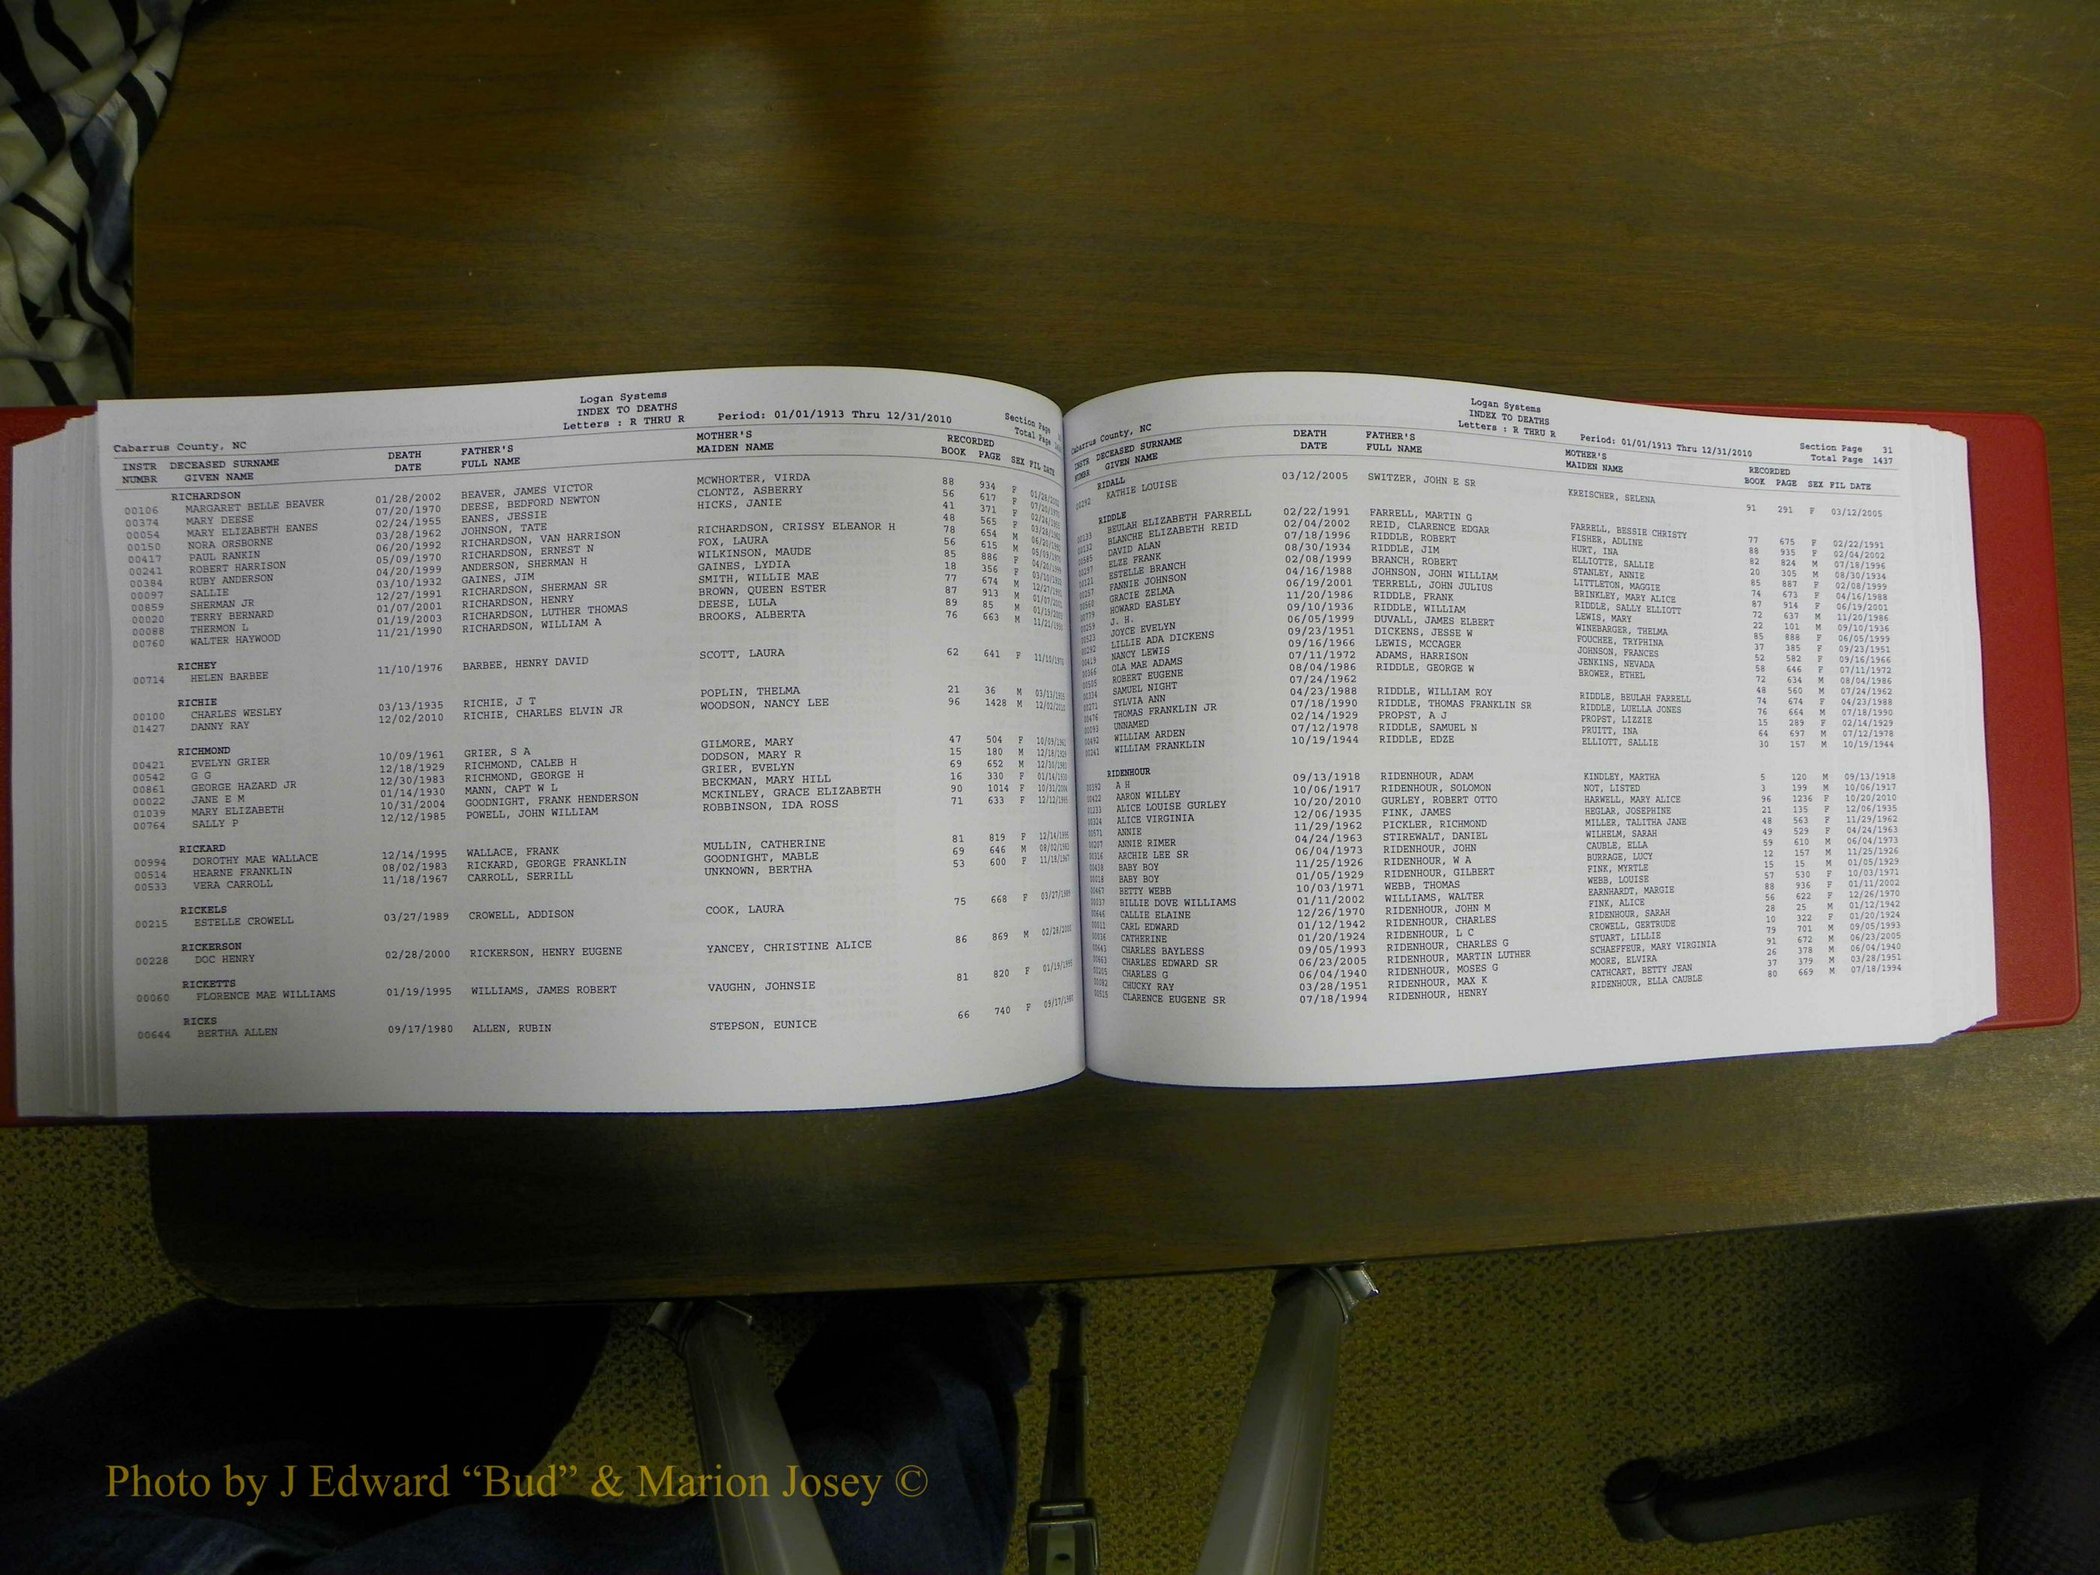 Logan Systems
INDEX TO DEATHS
Letters : R THRU R Period: 01/01/1913 Thru 12/31/2010
Cabarrus County, NC Section Page Total Page
INSTR DECEASED SURNAME DEATH FATHER'S MOTHER'S RECORDED
NUMBR GIVEN NAME DATE FULL NAME MAIDEN NAME BOOK PAGE SEX FIL DATE
RICHARDSON
00106 MARGARET BELLE BEAVER 01/28/2002 BEAVER, JAMES VICTOR MCWHORTER, VIRDA 88 934 F 01/28/2002
00374 MARY DEESE 07/20/1970 DEESE, BEDFORD NEWTON CLONTZ, ASBERRY 56 617 F 07/20/1970
00054 MARY ELIZABETH EANES 02/24/1955 EANES, JESSIE HICKS, JANIE 41 371 F 02/24/1955
00150 NORA ORSBORNE 03/28/1962 JOHNSON, TATE 48 565 F 03/28/1962
00417 PAUL RANKIN 06/20/1992 RICHARDSON, VAN HARRISON RICHARDSON, CRISSY ELEANOR H 78 654 M 06/20/1992
00241 ROBERT HARRISON 05/09/1970 RICHARDSON, ERNEST N FOX, LAURA 56 615 M 05/09/1970
00384 RUBY ANDERSON 04/20/1999 ANDERSON, SHERMAN H WILKINSON, MAUDE 85 886 F 04/20/1999
00097 SALLIE 03/10/1932 GAINES, JIM GAINES, LYDIA 18 356 F 03/10/1932
00859 SHERMAN JR 12/27/1991 RICHARDSON, SHERMAN SR SMITH, WILLIE MAE 77 674 M 12/27/1991
00020 TERRY BERNARD 01/07/2001 RICHARDSON, HENRY BROWN, QUEEN ESTER 87 913 M 01/07/2001
00088 THERMON L 01/19/2003 RICHARDSON, LUTHER THOMAS DEESE, LULA 89 85 M 01/19/2003
00760 WALTER HAYWOOD 11/21/1990 RICHARDSON, WILLIAM A BROOKS, ALBERTA 76 663 M 11/21/1990
RICHEY
00714 HELEN BARBEE 11/10/1976 BARBEE, HENRY DAVID SCOTT, LAURA 62 641 F 11/10/1976
RICHIE
00100 CHARLES WESLEY 03/13/1935 RICHIE, J T POPLIN, THELMA 21 36 M 03/13/1935
01427 DANNY RAY 12/02/2010 RICHIE, CHARLES ELVIN JR WOODSON, NANCY LEE 96 1428 M 12/02/2010
RICHMOND
00421 EVELYN GRIER 10/09/1961 GRIER, S A GILMORE, MARY 47 504 F 10/09/1961
00542 G G 12/18/1929 RICHMOND, CALEB H DODSON, MARY R 15 180 M 12/18/1929
00861 GEORGE HAZARD JR 12/30/1983 RICHMOND, GEORGE H GRIER, EVELYN 69 652 M 12/30/1983
00022 JANE E M 01/14/1930 MANN, CAPT W L BECKMAN, MARY HILL 16 330 F 01/14/1930
01039 MARY ELIZABETH 10/31/2004 GOODNIGHT, FRANK HENDERSON MCKINLEY, GRACE ELIZABETH 90 1014 F 10/31/2004
00764 SALLY P 12/12/1985 POWELL, JOHN WILLIAM ROBBINSON, IDA ROSS 71 633 F 12/12/1985
RICKARD
00994 DOROTHY MAE WALLACE 12/14/1995 WALLACE, FRANK MULLIN, CATHERINE 81 819 F 12/14/1995
00514 HEARNE FRANKLIN 08/02/1983 RICKARD, GEORGE FRANKLIN GOODNIGHT, MABLE 69 646 M 08/02/1983
00533 VERA CARROLL 11/18/1967 CARROLL, SERRILL UNKNOWN, BERTHA 53 600 F 11/18/1967
RICKELS
00215 ESTELLE CROWELL 03/27/1989 CROWELL, ADDISON COOK, LAURA 75 668 F 03/27/1989
RICKERSON
00228 DOC HENRY 02/28/2000 RICKERSON, HENRY EUGENE YANCEY, CHRISTINE ALICE 86 869 M 02/28/2000
RICKETTS
00060 FLORENCE MAE WILLIAMS 01/19/1995 WILLIAMS, JAMES ROBERT VAUGHN, JOHNSIE 81 820 F 01/19/1995
RICKS
00644 BERTHA ALLEN 09/17/1980 ALLEN, RUBIN STEPSON, EUNICE 66 740 F 09/17/1980
Logan Systems
INDEX TO DEATHS
Letters : R THRU R Period: 01/01/1913 Thru 12/31/2010
Cabarrus County, NC Section Page 31
Total Page 1437
INSTR DECEASED SURNAME DEATH FATHER'S MOTHER'S RECORDED
NUMBR GIVEN NAME DATE FULL NAME MAIDEN NAME BOOK PAGE SEX FIL DATE
RIDALL
00292 KATHIE LOUISE 03/12/2005 SWITZER, JOHN E SR KREISCHER, SELENA 91 291 F 03/12/2005
RIDDLE
00133 BEULAH ELIZABETH FARRELL 02/22/1991 FARRELL, MARTIN G FARRELL, BESSIE CHRISTY 77 675 F 02/22/1991
00132 BLANCHE ELIZABETH REID 02/04/2002 REID, CLARENCE EDGAR FISHER, ADLINE 88 935 F 02/04/2002
00585 DAVID ALAN 07/18/1996 RIDDLE, ROBERT HURT, INA 82 824 M 07/18/1996
00297 ELZE FRANK 08/30/1934 RIDDLE, JIM ELLIOTTE, SALLIE 20 305 M 08/30/1934
00121 ESTELLE BRANCH 02/08/1999 BRANCH, ROBERT STANLEY, ANNIE 85 887 F 02/08/1999
00257 FANNIE JOHNSON 04/16/1988 JOHNSON, JOHN WILLIAM LITTLETON, MAGGIE 74 673 F 04/16/1988
00560 GRACIE ZELMA 06/19/2001 TERRELL, JOHN JULIUS BRINKLEY, MARY ALICE 87 914 F 06/19/2001
00779 HOWARD EASLEY 11/20/1986 RIDDLE, FRANK RIDDLE, SALLY ELLIOTT 72 637 M 11/20/1986
00259 J. H. 09/10/1936 RIDDLE, WILLIAM LEWIS, MARY 22 101 M 09/10/1936
00523 JOYCE EVELYN 06/05/1999 DUVALL, JAMES ELBERT WINEBARGER, THELMA 85 888 F 06/05/1999
00292 LILLIE ADA DICKENS 09/23/1951 DICKENS, JESSE W FOUCHEE, TRYPHINA 37 385 F 09/23/1951
00419 NANCY LEWIS 09/16/1966 LEWIS, MCCAGER JOHNSON, FRANCES 52 582 F 09/16/1966
00366 OLA MAE ADAMS 07/11/1972 ADAMS, HARRISON JENKINS, NEVADA 58 646 F 07/11/1972
00505 ROBERT EUGENE 08/04/1986 RIDDLE, GEORGE W BROWER, ETHEL 72 634 M 08/04/1986
00334 SAMUEL NIGHT 07/24/1962 48 560 M 07/24/1962
00271 SYLVIA ANN 04/23/1988 RIDDLE, WILLIAM ROY RIDDLE, BEULAH FARRELL 74 674 F 04/23/1988
00476 THOMAS FRANKLIN JR 07/18/1990 RIDDLE, THOMAS FRANKLIN SR RIDDLE, LUELLA JONES 76 664 M 07/18/1990
00093 UNNAMED 02/14/1929 PROPST, A J PROPST, LIZZIE 15 289 F 02/14/1929
00492 WILLIAM ARDEN 07/12/1978 RIDDLE, SAMUEL N PRUITT, INA 64 697 M 07/12/1978
00241 WILLIAM FRANKLIN 10/19/1944 RIDDLE, EDZE ELLIOTT, SALLIE 30 157 M 10/19/1944
RIDENHOUR
00390 A H 09/13/1918 RIDENHOUR, ADAM KINDLEY, MARTHA 5 120 M 09/13/1918
00422 AARON WILLEY 10/06/1917 RIDENHOUR, SOLOMON NOT, LISTED 3 199 M 10/06/1917
01233 ALICE LOUISE GURLEY 10/20/2010 GURLEY, ROBERT OTTO HARWELL, MARY ALICE 96 1236 F 10/20/2010
00324 ALICE VIRGINIA 12/06/1935 FINK, JAMES HEGLAR, JOSEPHINE 21 135 F 12/06/1935
00571 ANNIE 11/29/1962 PICKLER, RICHMOND MILLER, TALITHA JANE 48 563 F 11/29/1962
00207 ANNIE RIMER 04/24/1963 STIREWALT, DANIEL WILHELM, SARAH 49 529 F 04/24/1963
00316 ARCHIE LEE SR 06/04/1973 RIDENHOUR, JOHN CAUBLE, ELLA 59 610 M 06/04/1973
00438 BABY BOY 11/25/1926 RIDENHOUR, W A BURRAGE, LUCY 12 157 M 11/25/1926
00018 BABY BOY 01/05/1929 RIDENHOUR, GILBERT FINK, MYRTLE 15 15 M 01/05/1929
00467 BETTY WEBB 10/03/1971 WEBB, THOMAS WEBB, LOUISE 57 530 F 10/03/1971
00037 BILLIE DOVE WILLIAMS 01/11/2002 WILLIAMS, WALTER EARNHARDT, MARGIE 88 936 F 01/11/2002
00646 CALLIE ELAINE 12/26/1970 RIDENHOUR, JOHN M FINK, ALICE 56 622 F 12/26/1970
00011 CARL EDWARD 01/12/1942 RIDENHOUR, CHARLES RIDENHOUR, SARAH 28 25 M 01/12/1942
00036 CATHERINE 01/20/1924 RIDENHOUR, L C CROWELL, GERTRUDE 10 322 F 01/20/1924
00643 CHARLES BAYLESS 09/05/1993 RIDENHOUR, CHARLES G STUART, LILLIE 79 701 M 09/05/1993
00663 CHARLES EDWARD SR 06/23/2005 RIDENHOUR, MARTIN LUTHER SCHAEFFEUR, MARY VIRGINIA 91 672 M 06/23/2005
00205 CHARLES G 06/04/1940 RIDENHOUR, MOSES G MOORE, ELVIRA 26 378 M 06/04/1940
00082 CHUCKY RAY 03/28/1951 RIDENHOUR, MAX K CATHCART, BETTY JEAN 37 379 M 03/28/1951
00515 CLARENCE EUGENE SR 07/18/1994 RIDENHOUR, HENRY RIDENHOUR, ELLA CAUBLE 80 669 M 07/18/1994
Photo by J Edward “Bud” & Marion Josey ©